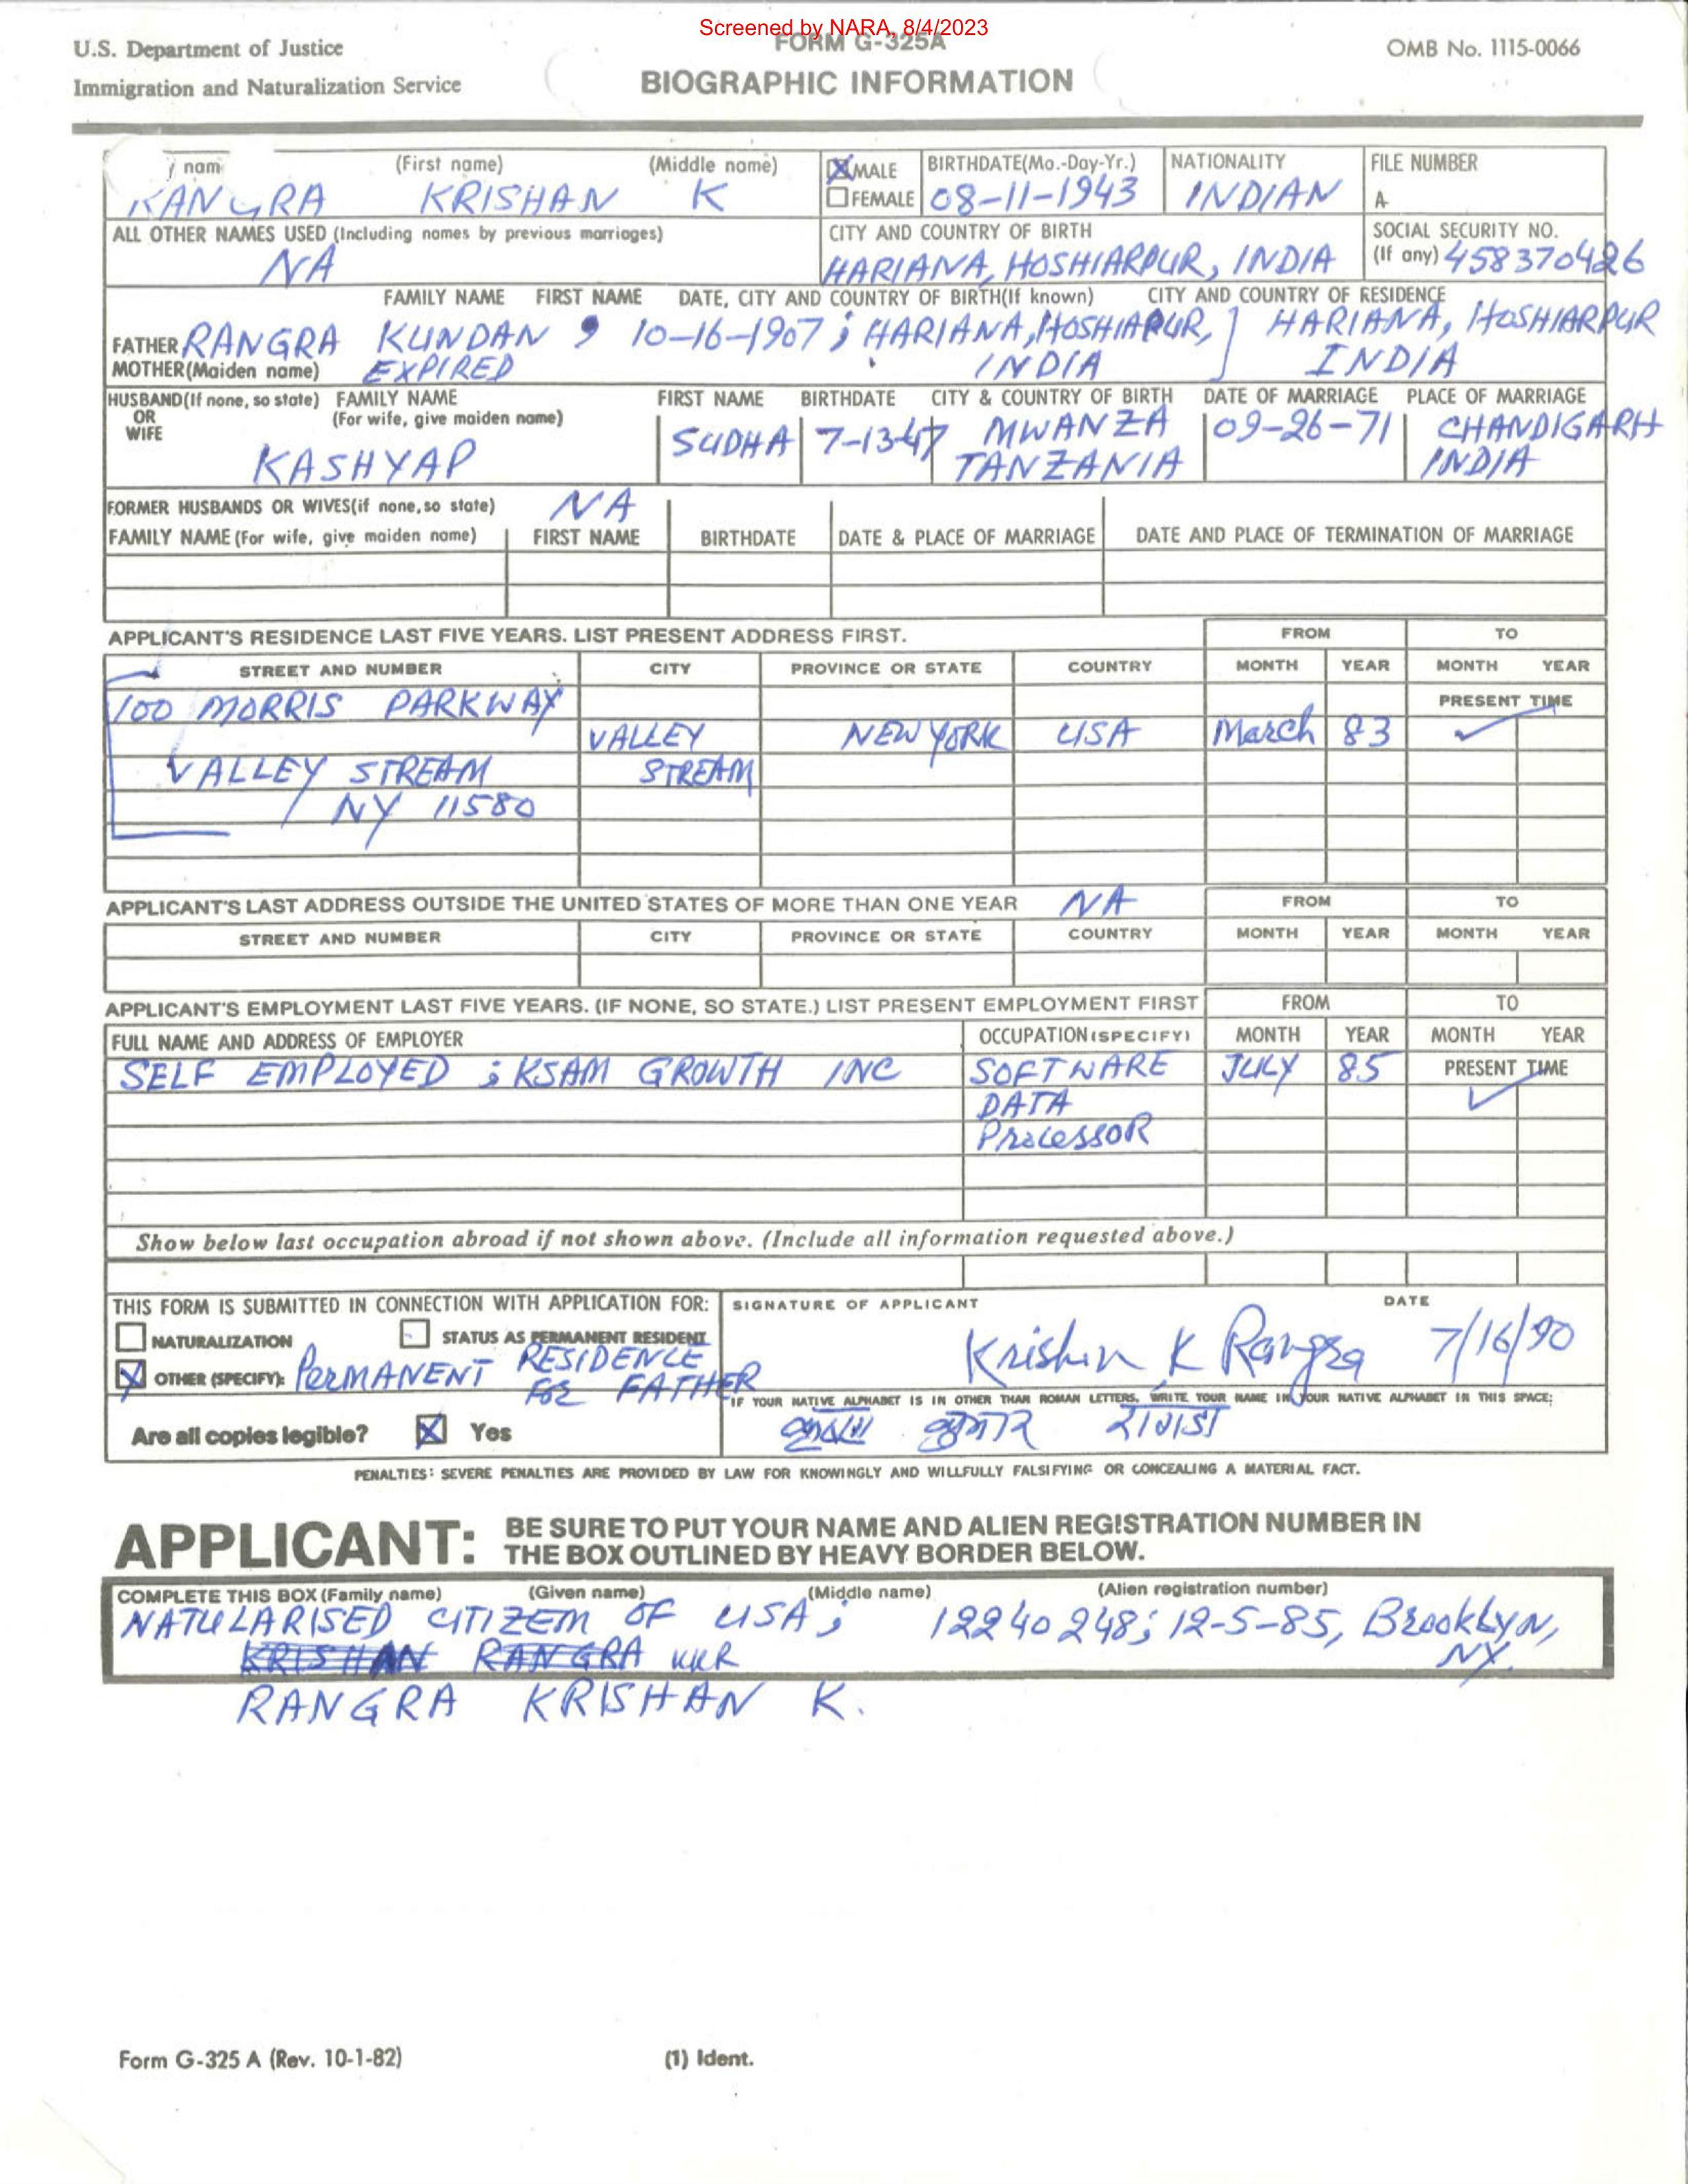 Screened by NARA, 8/4/2023
U.S. Department of Justice
Immigration and Naturalization Service
FORM G-325A
BIOGRAPHIC INFORMATION
OMB No. 1115-0066
nam (First name) (Middle name) MALE FEMALE BIRTHDATE(Mo.-Day-Yr.) NATIONALITY FILE NUMBER
RANGRA KRISHAN K X 08-11-1943 INDIAN A-
ALL OTHER NAMES USED (Including names by previous marriages) CITY AND COUNTRY OF BIRTH SOCIAL SECURITY NO. (If any)
NA HARIANA, HOSHIARPUR, INDIA 458370426
FAMILY NAME FIRST NAME DATE, CITY AND COUNTRY OF BIRTH(If known) CITY AND COUNTRY OF RESIDENCE
FATHER RANGRA KUNDAN , 10-16-1907 ; HARIANA, HOSHIARPUR, ] HARIANA, HOSHIARPUR
MOTHER(Maiden name) EXPIRED INDIA INDIA
HUSBAND(If none, so state) OR WIFE FAMILY NAME (For wife, give maiden name) FIRST NAME BIRTHDATE CITY & COUNTRY OF BIRTH DATE OF MARRIAGE PLACE OF MARRIAGE
KASHYAP SUDHA 7-13-47 MWANZA TANZANIA 09-26-71 CHANDIGARH INDIA
FORMER HUSBANDS OR WIVES(if none, so state) NA
FAMILY NAME (For wife, give maiden name) FIRST NAME BIRTHDATE DATE & PLACE OF MARRIAGE DATE AND PLACE OF TERMINATION OF MARRIAGE
APPLICANT'S RESIDENCE LAST FIVE YEARS. LIST PRESENT ADDRESS FIRST. FROM TO
STREET AND NUMBER CITY PROVINCE OR STATE COUNTRY MONTH YEAR MONTH YEAR
100 MORRIS PARKWAY PRESENT TIME
VALLEY NEW YORK USA March 83 ✓
VALLEY STREAM STREAM
NY 11580
APPLICANT'S LAST ADDRESS OUTSIDE THE UNITED STATES OF MORE THAN ONE YEAR NA FROM TO
STREET AND NUMBER CITY PROVINCE OR STATE COUNTRY MONTH YEAR MONTH YEAR
APPLICANT'S EMPLOYMENT LAST FIVE YEARS. (IF NONE, SO STATE.) LIST PRESENT EMPLOYMENT FIRST FROM TO
FULL NAME AND ADDRESS OF EMPLOYER OCCUPATION (SPECIFY) MONTH YEAR MONTH YEAR
SELF EMPLOYED ; KSAM GROWTH INC SOFTWARE JULY 85 PRESENT TIME
DATA ✓
PROCESSOR
Show below last occupation abroad if not shown above. (Include all information requested above.)
THIS FORM IS SUBMITTED IN CONNECTION WITH APPLICATION FOR: SIGNATURE OF APPLICANT DATE
NATURALIZATION STATUS AS PERMANENT RESIDENT
X OTHER (SPECIFY): PERMANENT RESIDENCE FOR FATHER
Krishan K Rangra 7/16/90
IF YOUR NATIVE ALPHABET IS IN OTHER THAN ROMAN LETTERS, WRITE YOUR NAME IN YOUR NATIVE ALPHABET IN THIS SPACE:
Are all copies legible? X Yes
कुमार
PENALTIES: SEVERE PENALTIES ARE PROVIDED BY LAW FOR KNOWINGLY AND WILLFULLY FALSIFYING OR CONCEALING A MATERIAL FACT.
APPLICANT: BE SURE TO PUT YOUR NAME AND ALIEN REGISTRATION NUMBER IN
THE BOX OUTLINED BY HEAVY BORDER BELOW.
COMPLETE THIS BOX (Family name) (Given name) (Middle name) (Alien registration number)
NATULARISED CITIZEM OF USA; 12240248; 12-5-85, Brooklyn,
KRISHAN RANGRA KKR NY
RANGRA KRISHAN K.
Form G-325 A (Rev. 10-1-82) (1) Ident.